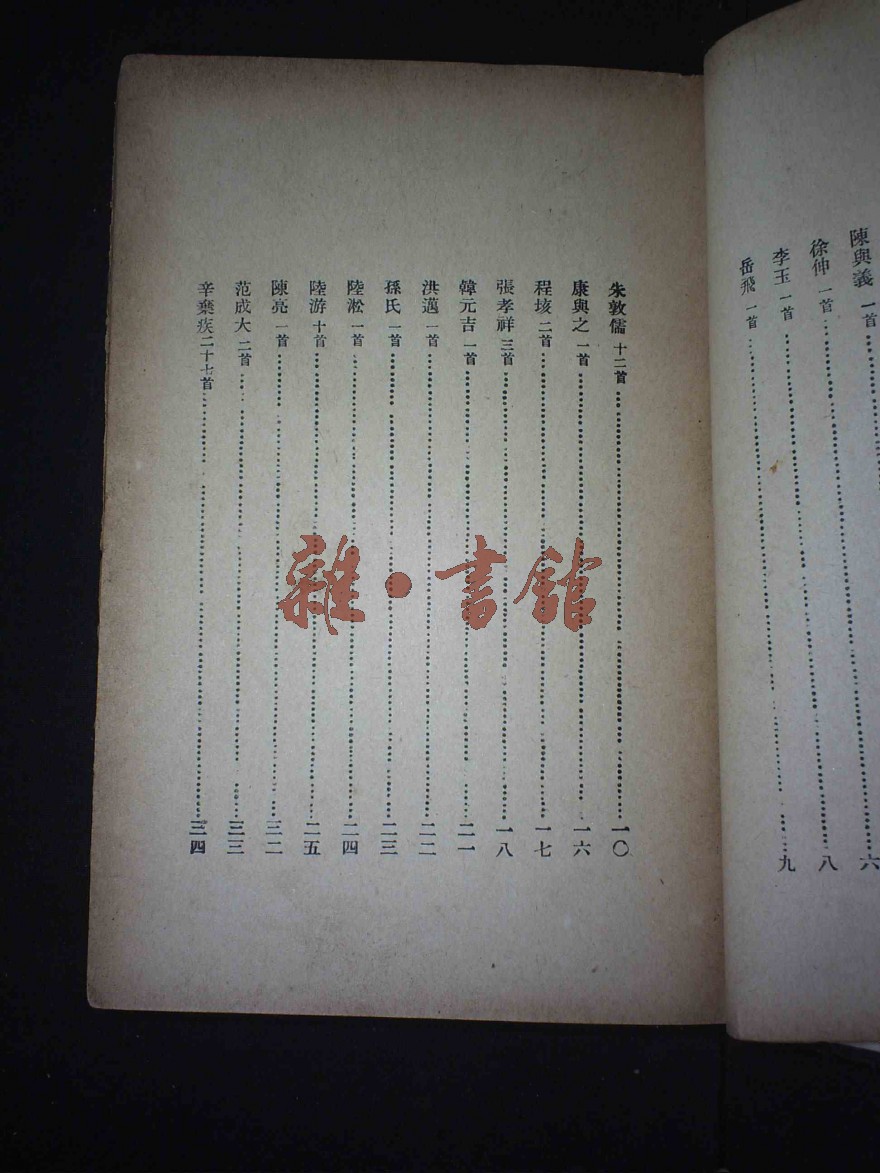 陳與義 一首 六
徐伸 一首 八
李玉 一首 九
岳飛 一首
朱敦儒 十二首 一〇
康與之 一首 一六
程垓 二首 一七
張孝祥 三首 一八
韓元吉 一首 二一
洪邁 一首 二二
孫氏 一首 二三
陸淞 一首 二四
陸游 十首 二五
陳亮 一首 三二
范成大 二首 三三
辛棄疾 二十七首 三四
雜·書館